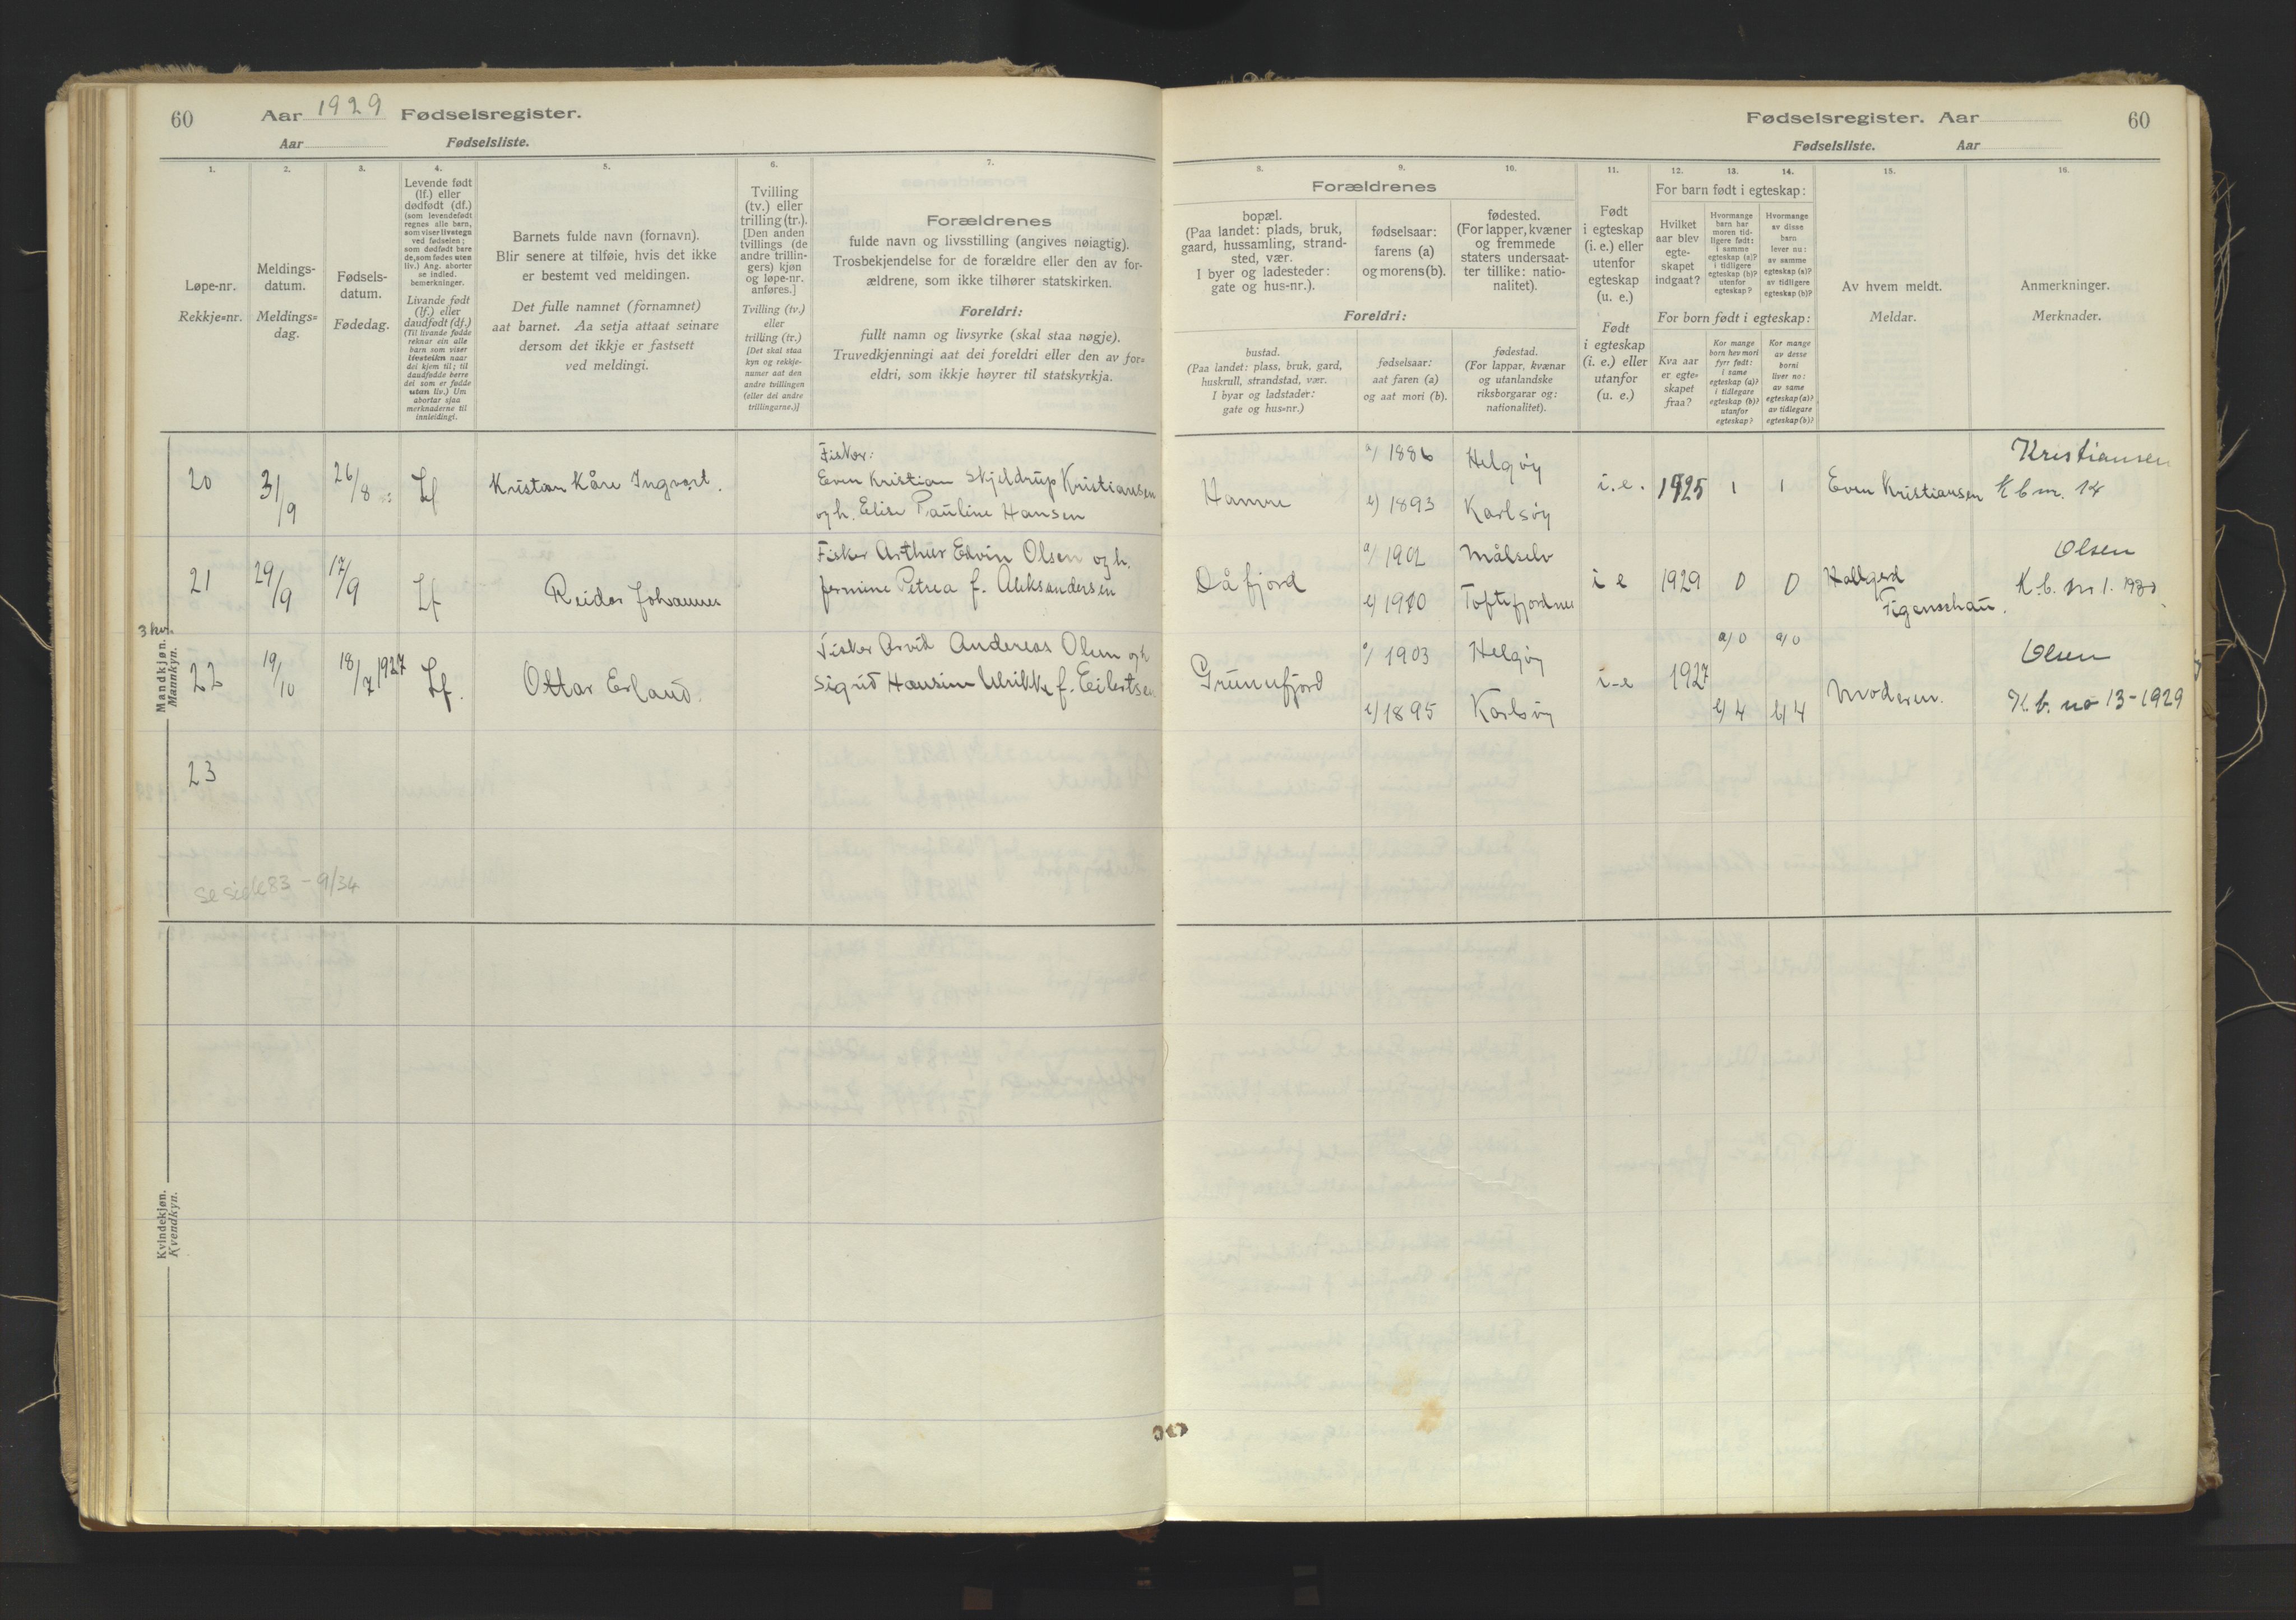 60
Aar 1929 Fødselsregister.
Aar Fødselsliste.
1.
2.
3.
4.
5.
6.
7.
Løpe-nr.
Rekkje=nr.
Meldings-
datum.
Meldings=
dag.
Fødsels-
datum.
Fødedag.
Levende født
(lf.) eller
dødfødt (df.)
(som levendefødt
regnes alle barn,
som viser livstegn
ved fødselen;
som dødfødt bare
de, som fødes uten
liv.) Ang. aborter
se indled.
bemerkninger.
Livande født
(lf.) eller
daudfødt (df.)
(Til livande fødde
reknar ein alle
barn som viser
livsteikn naar
dei kjem til; til
daudfødde berre
dei som er fødde
utan liv.) Um
abortar sjaa
merknaderne til
innleidingi.
Barnets fulde navn (fornavn).
Blir senere at tilføie, hvis det ikke
er bestemt ved meldingen.
Det fulle namnet (fornamnet)
aat barnet. Aa setja attaat seinare
dersom det ikkje er fastsett
ved meldingi.
Tvilling
(tv.) eller
trilling (tr.).
[Den anden
tvillings (de
andre trillin-
gers) kjøn
og løpe-nr.
anføres.]
Tvilling (tv.)
eller
trilling (tr.)
[Det skal staa
kyn og rekkje-
numer aat den
andre tvillingen
(eller dei andre
trillingarne.)]
Forældrenes
fulde navn og livsstilling (angives nøiagtig).
Trosbekjendelse for de forældre eller den av for-
ældrene, som ikke tilhører statskirken.
Foreldri:
fullt namn og livsyrke (skal staa nøgje).
Truvedkjenningi aat dei foreldri eller den av for=
eldri, som ikkje høyrer til statskyrkja.
Mandkjøn.
Mannkyn.
20
31/9
26/8
Lf
Kristian Kåre Ingvart.
Fisker:
Even Kristian Skjeldrup Kristiansen
og h. Elise Pauline Hansen
21
29/9
17/9
Lf
Reidar Johannes
Fisker Arthur Edvin Olsen og h.
Jermine Petrea f. Aleksandersen
22
19/10
18/7 1927
Lf.
Ottar Erland.
Fisker Arvid Andereas Olsen og h
Sigrid Hansine Ulrikke f. Eilertsen
23
se side 83 - 9/34
Kvindekjøn.
Kvendkyn.
Fødselsregister. Aar
60
Fødselsliste. Aar
8.
9.
10.
11.
12.
13.
14.
15.
16.
Forældrenes
bopæl.
(Paa landet: plads, bruk,
gaard, hussamling, strand-
sted, vær.
I byer og ladesteder:
gate og hus-nr.).
fødselsaar:
farens (a)
og morens (b).
fødested.
(For lapper, kvæner
og fremmede
staters undersaat-
ter tillike: natio-
nalitet).
Foreldri:
bustad.
(Paa landet: plass, bruk, gard,
huskrull, strandstad, vær.
I byar og ladstader:
gate og hus=nr.)
fødselsaar:
aat faren (a)
og aat mori (b).
fødestad.
(For lappar, kvænar
og utanlandske
riksborgarar og:
nationalitet).
Født
i egteskap
(i. e.) eller
utenfor
egteskap
(u. e.)
Født
i egteskap
(i. e.) eller
utanfor
(u. e.)
For barn født i egteskap:
Hvilket
aar blev
egte-
skapet
indgaat?
Hvormange
barn har
moren tid-
ligere født:
i samme
egteskap (a)?
i tidligere
egteskap (b)?
utenfor
egteskap?
Hvormange
av disse
barn
lever nu:
av samme
egteskap (a)?
av tidligere
egteskap (b)?
For born født i egteskap:
Kva aar
er egte=
skapet
fraa?
Kor mange
born hev mori
fyrr født:
i same
egteskap (a)?
i tidlegare
egteskap (b)?
utanfor
egteskap?
Kor mange
av desse
borni
liver no:
av same
egteskap (a)?
av tidlegare
egteskap (b)?
Av hvem meldt.
Meldar.
Anmerkninger.
Merknader.
Hamre
a/ 1886
b) 1893
Helgøy
Karlsøy
i. e.
1925
1
1
Even Kristiansen
Kristiansen
K b nr. 14
Dåfjord
a/ 1902
b) 1910
Målselv
Toftefjordnes
i e
1929
0
0
Hallgerd
Figenschau.
Olsen
K. b. nr 1. 1930
Grunnfjord
a/ 1903
b) 1895
Helgøy
Karlsøy
i-e
1927
a) 0
b) 4
a) 0
b) 4
Moderen.
Olsen
K. b. no 13-1929